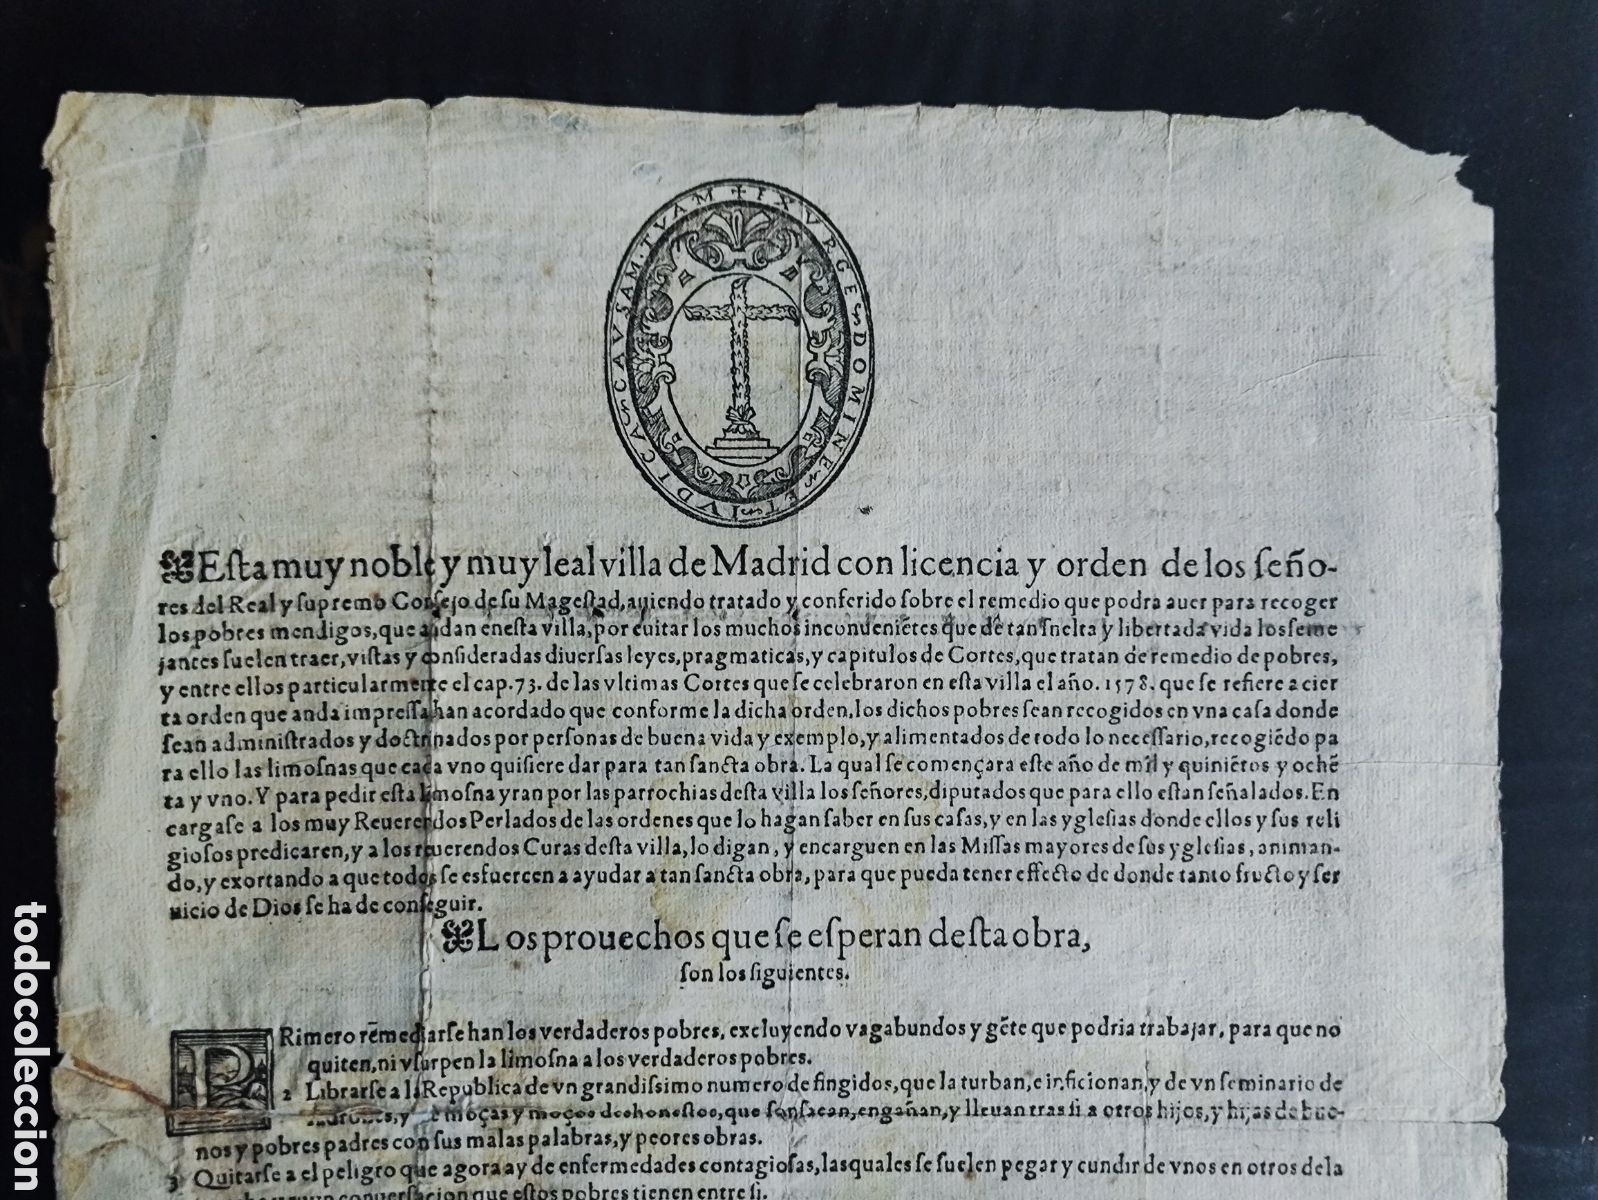 ✠ IXVRGE DOMINE ET IVDICA CAVSAM. TVAM
Eſta muy noble y muy leal villa de Madrid con licencia y orden de los ſeño-
res del Real y ſupremo Conſejo de ſu Mageſtad, auiendo tratado y conferido ſobre el remedio que podra auer para recoger
los pobres mendigos, que andan en eſta villa, por euitar los muchos inconueniẽtes que dẽ tan ſuelta y libertada vida los ſeme
jantes ſuelen traer, viſtas y conſideradas diuerſas leyes, pragmaticas, y capitulos de Cortes, que tratan de remedio de pobres,
y entre ellos particularmente el cap. 73. de las vltimas Cortes que ſe celebraron en eſta villa el año. 1578. que ſe refiere a cier
ta orden que anda impreſſa han acordado que conforme la dicha orden, los dichos pobres ſean recogidos en vna caſa donde
ſean adminiſtrados y doctrinados por perſonas de buena vida y exemplo, y alimentados de todo lo neceſſario, recogiẽdo pa
ra ello las limoſnas que cada vno quiſiere dar para tan ſancta obra. La qual ſe començara eſte año de mil y quiniẽtos y ochẽ
ta y vno. Y para pedir eſta limoſna yran por las parrochias deſta villa los ſeñores, diputados que para ello eſtan ſeñalados. En
cargaſe a los muy Reuerendos Perlados de las ordenes que lo hagan ſaber en ſus caſas, y en las ygleſias donde ellos y ſus reli
gioſos predicaren, y a los reuerendos Curas deſta villa, lo digan, y encarguen en las Miſſas mayores de ſus ygleſias, animan-
do, y exortando a que todos ſe esfuercen a ayudar a tan ſancta obra, para que pueda tener effecto de donde tanto fructo y ſer
uicio de Dios ſe ha de conſeguir.
Los prouechos que ſe eſperan deſta obra,
ſon los ſiguientes.
PRimero rẽmediarſe han los verdaderos pobres, excluyendo vagabundos y gẽte que podria trabajar, para que no
quiten, ni vſurpen la limoſna a los verdaderos pobres.
2 Librarſe a la Republica de vn grandiſsimo numero de fingidos, que la turban, e inficionan, y de vn ſeminario de
ladrones, y de moças y moços deshoneſtos, que ſonſacan, engañan, y lleuan tras ſi a otros hijos, y hijas de bue-
nos y pobres padres con ſus malas palabras, y peores obras.
3 Quitarſe a el peligro que agora ay de enfermedades contagioſas, las quales ſe ſuelen pegar y cundir de vnos en otros de la
conuerſacion que eſtos pobres tienen entre ſi.
todocoleccion